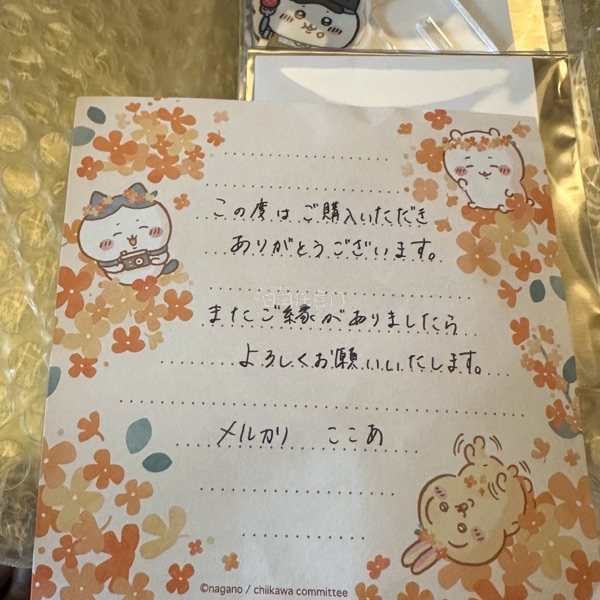 この度はご購入いただき
ありがとうございます。
またご縁がありましたら
よろしくお願いいたします。
メルカリ ここあ
©nagano / chiikawa committee